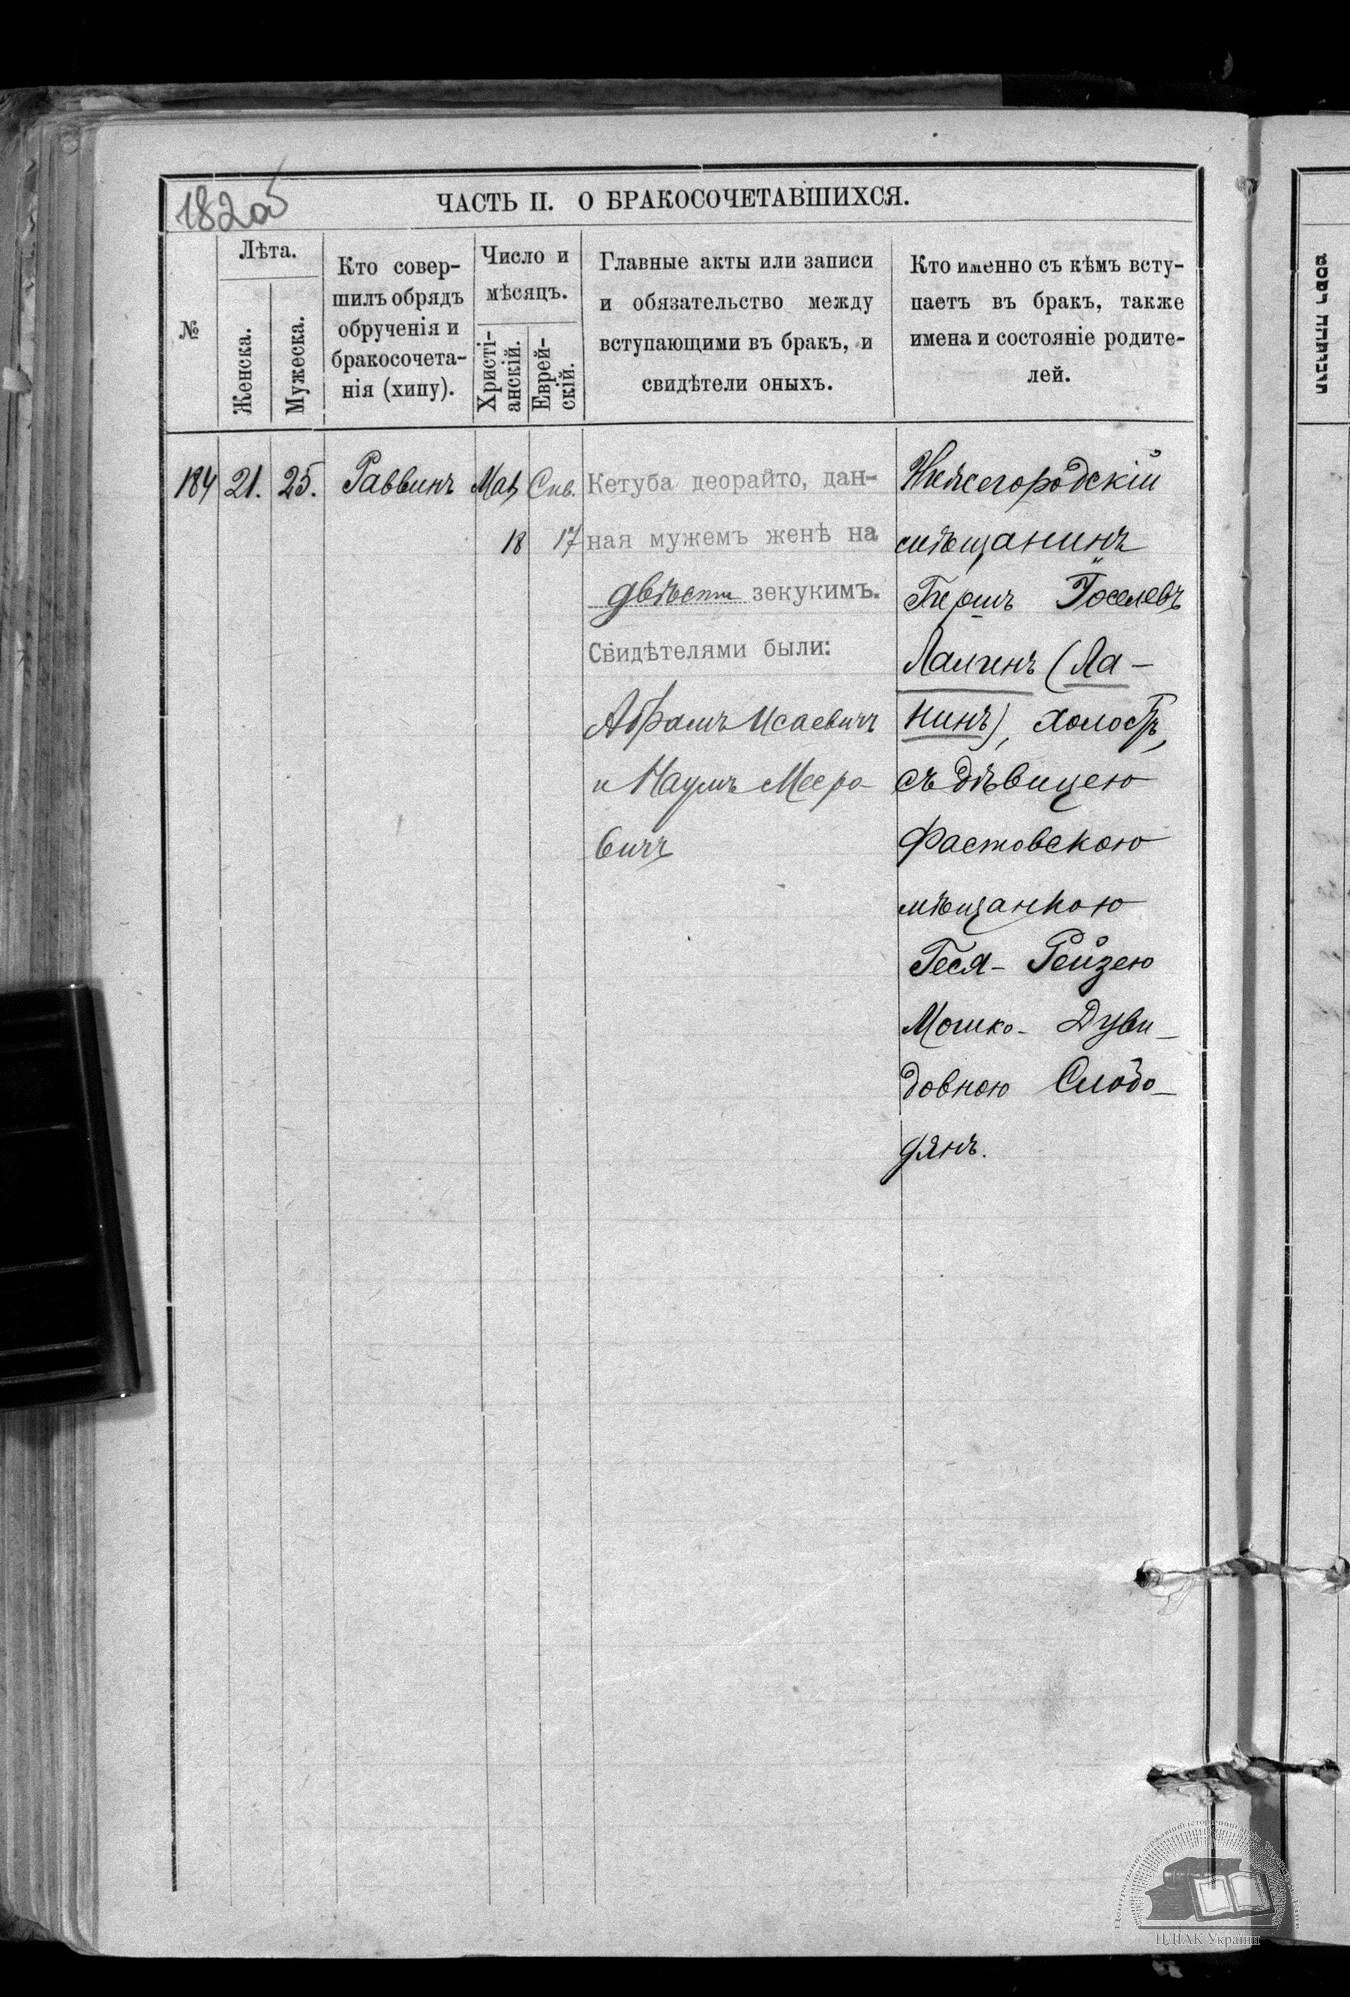 182об
ЧАСТЬ II. О БРАКОСОЧЕТАВШИХСЯ.
№
Лѣта.
Женска.
Мужеска.
Кто совер-
шилъ обрядъ
обрученія и
бракосочета-
нія (хипу).
Число и
мѣсяцъ.
Христі-
анскій.
Еврей-
скій.
Главные акты или записи
и обязательство между
вступающими въ бракъ, и
свидѣтели оныхъ.
Кто именно съ кѣмъ всту-
паетъ въ бракъ, также
имена и состояніе родите-
лей.
184 21. 25. Раввинъ
Май
18
Сив.
17
Кетуба деорайто, дан-
ная мужемъ женѣ на
двѣсти зекукимъ.
Свидѣтелями были:
Абрамъ Исаевичъ
и Наумъ Мееро-
вичъ
Нижегородскій
мѣщанинъ
Гершъ Іоселевъ
Лапинъ (Ла-
нинъ), холостъ,
съ дѣвицею
Фастовскою
мѣщанкою
Геся-Рейзею
Мошко-Дуви-
довною Слобо-
дянъ.
ЦДІАК України